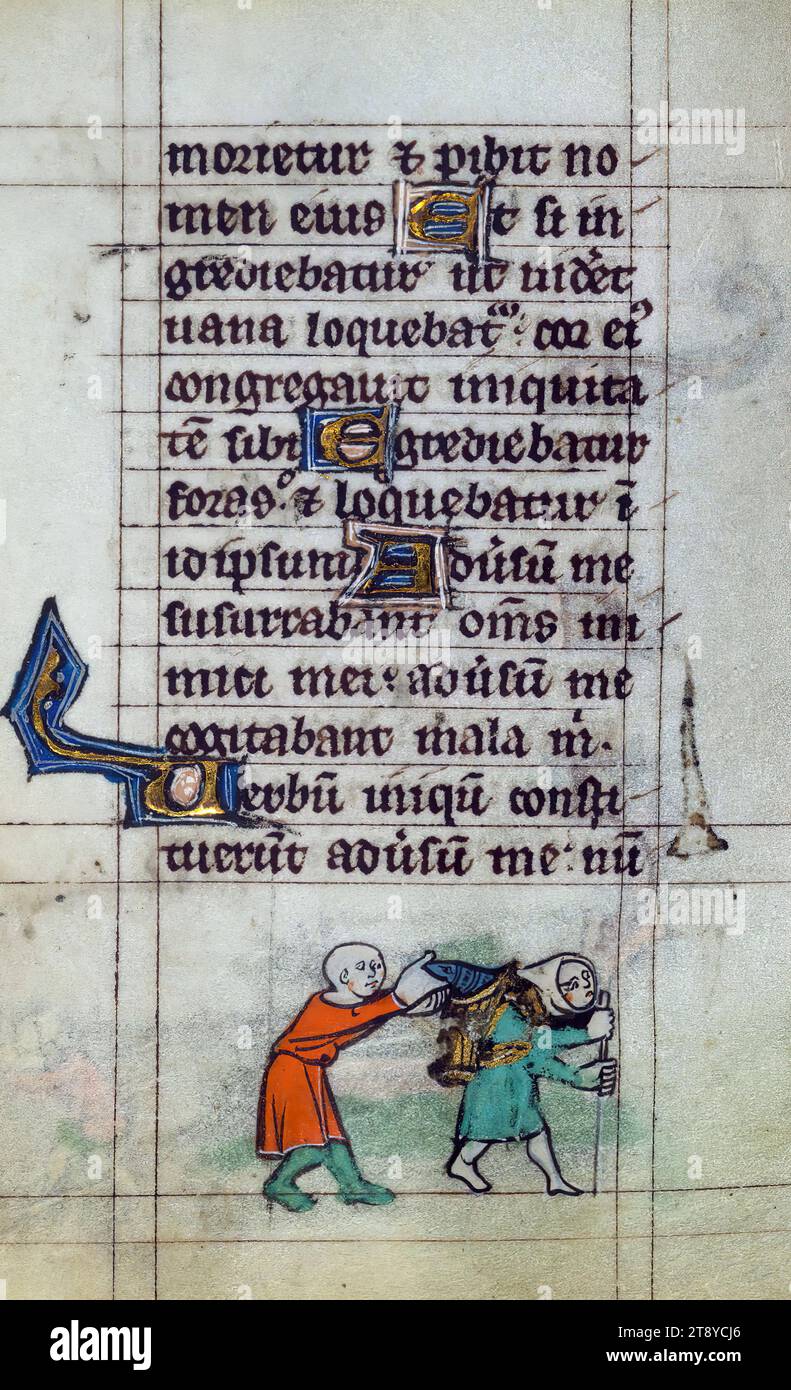 morietur & pibit no
men eius Et si in
grediebatur ut uidet
uana loquebat cor ei
congregauit iniquita
tē sibi Egrediebatur
foras & loquebatur ī
idipsum Adusū me
susurrabant oms ini
mici mei adusū me
cogitabant mala m
Uerbū iniqū consti
tuerūt adusū me nū
alamy
Image ID: 2T8YCJ6
www.alamy.com